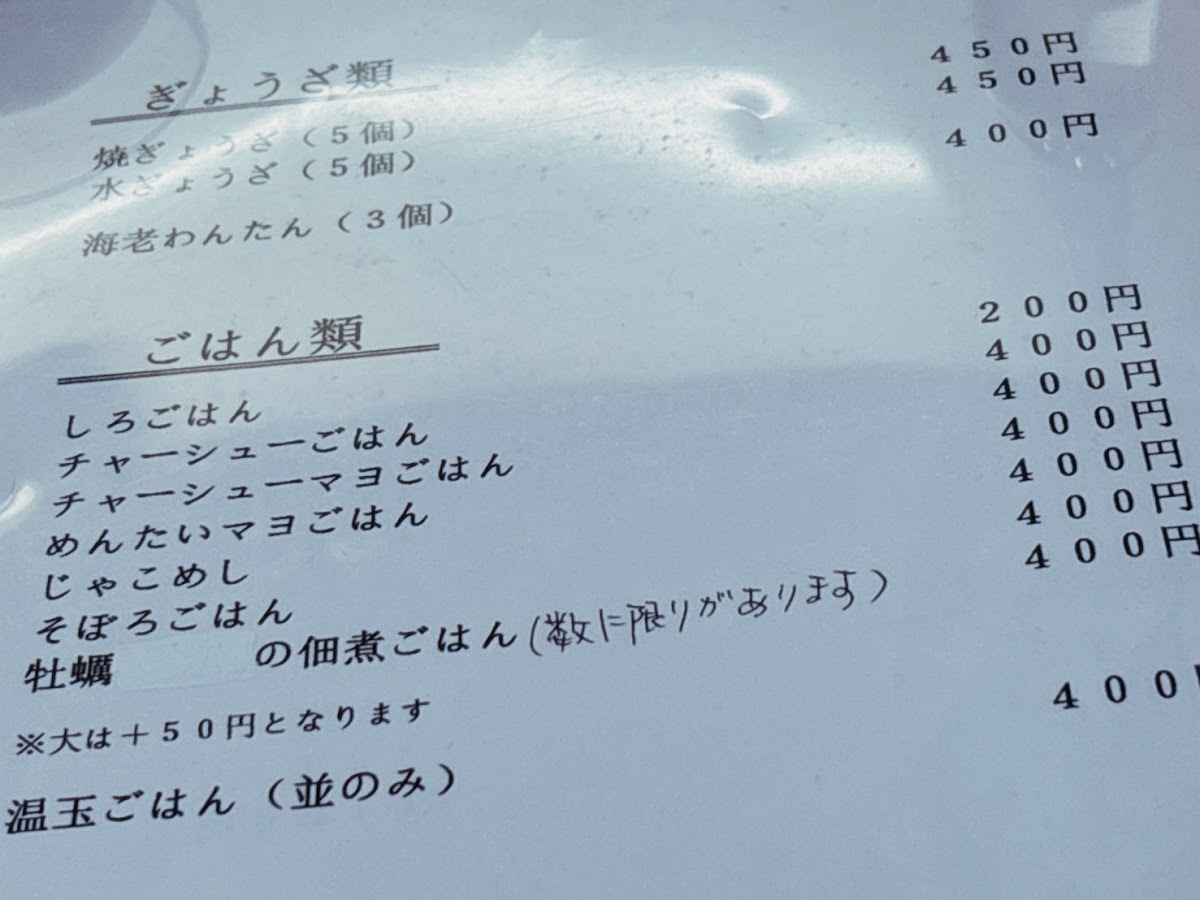 ぎょうざ類
焼ぎょうざ（５個） ４５０円
水ぎょうざ（５個） ４５０円
海老わんたん（３個） ４００円
ごはん類
しろごはん ２００円
チャーシューごはん ４００円
チャーシューマヨごはん ４００円
めんたいマヨごはん ４００円
じゃこめし ４００円
そぼろごはん ４００円
牡蠣 の佃煮ごはん（数に限りがあります） ４００円
※大は＋５０円となります
温玉ごはん（並のみ） ４００円